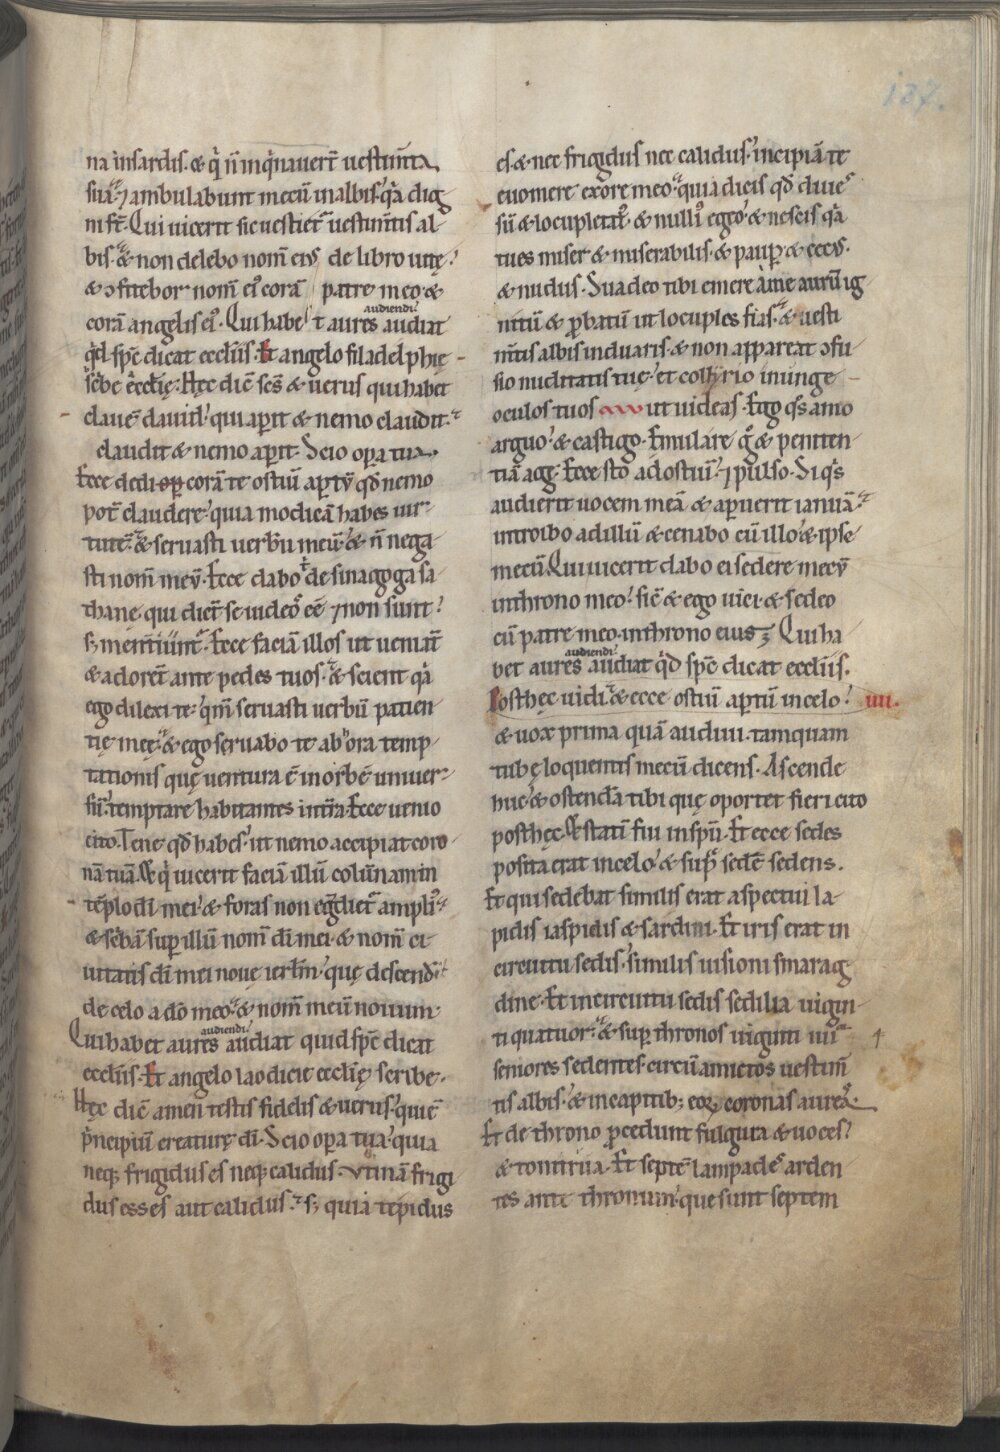 137.
na insardis. & q̇ n̄ inq̇nauer̄t uestim̄ta
suā. ⁊ ambulabunt mecū inalbis. q̇a dig
ni st̄. Qui uicerit sic uestiet᷑ uestim̄tis al-
bis. & non delebo nom̄ eius de libro uitę.
& ɔfitebor nom̄ ei᷒ corā patre meo &
corā angelis ei᷒. Qui habet aures audiat
audiendi
qd̄ sp̄c dicat eccl̄iis. Et angelo filadelphię
sc̄be eccl̄ię. Hęc dic̄ sc̄s & uerus qui habet
clauē dauid. qui aꝑit & nemo claudit.
claudit & nemo aꝑit. Scio opera tua.
Ecce dedi coră te ostiū aꝑtū qd̄ nemo
pot̄ claudere. quia modicā habes uir
tutē. & seruasti uerbū meū. & n̄ nega
sti nom̄ meū. Ecce dabo t̄ de sinagoga sa
thane qui dic̄t se iudeo᷒ eē ⁊ non sunt.
s; mentiunt᷑. Ecce faciā illos ut ueniāt
& adorēt ante pedes tuos. & scient q̇a
ego dilexi te. qm̄ seruasti uerbū patien
tię meę. & ego seruabo te ab hora temp
tationis quę uentura ē in orbē uniuer
sū. temptare habitantes int̄ra. Ecce uenio
cito. Tene qd̄ habes. ut nemo accipiat coro
nā tuā. & q̇ uicerit faciā illū colūnam in
tēplo dī mei. & foras non eḡdiet᷑ ampli᷒.
& sc̄bā super illū nom̄ dī mei & nom̄ ci
uitatis dī mei nouę ierl̄m. quę descend̄
de celo a dō meo. & nom̄ meū nouum
Qui habet aures audiat quid sp̄c dicat
audiendi
eccl̄iis. Et angelo laodicie eccl̄ię scribe.
Hęc dic̄ amen testis fidelis & uerus. qui ē
ṗncipiū creaturę dī. Scio opera tua. quia
neq; frigidus es neq; calidus. Vtinā frigi
dus esses aut calidus. s; quia tepidus
es & nec frigidus nec calidus. incipiā te
euomere exore meo. quia dicis qd̄ diues
sū & locupletat᷒. & null᷒ egeo. & nescis q̇a
tu es miser & miserabilis. & paup̄ & cecus.
& nudus. Suadeo tibi emere ame aurū ig
nitū & ꝓbatū ut locuples fias. & uesti
m̄tis albis induaris. & non appareat ɔfu
sio nuditatis tuę. et collyrio inunge
oculos tuos ut uideas. Ego q̄s amo
arguo. & castigo. Emulare ḡ & peniten
tiā age. Ecce sto ad ostiū. ⁊ pulso. Si q̇s
audierit uocem meā & aperuerit ianuā.
introibo ad illū & cenabo cū illo. & ipse
mecū. Qui uicerit dabo ei sedere mecū
inthrono meo. sic̄ & ego uici. & sedeo
cū patre meo. inthrono eius. Qui ha
bet aures audiat qd̄ sp̄c dicat eccl̄iis.
audiendi
Posthęc uidi. & ecce ostiū aꝑtū in celo. IIII.
& uox prima quā audiui. tamquam
tubę loquentis mecū dicens. Ascende
huc. & ostendā tibi quę oportet fieri cito
posthęc. & statī fui in sp̄u. Et ecce sedes
posita erat in celo. & sup̄ sedē sedens.
Et qui sedebat similis erat aspectui la-
pidis iaspidis & sardini. Et iris erat in
circuitu sedis. similis uisioni smarag
dine. Et in circuitu sedis sedilia uigin
ti quatuor. & super thronos uiginti iiii
seniores sedentes. circū amictos uestim̄
tis albis. & incapitib; eoꝝ coronas aureas.
Et de throno ꝓcedunt fulgura & uoces.
& tonitrua. Et septē lampades arden
tes ante thronum. que sunt septem